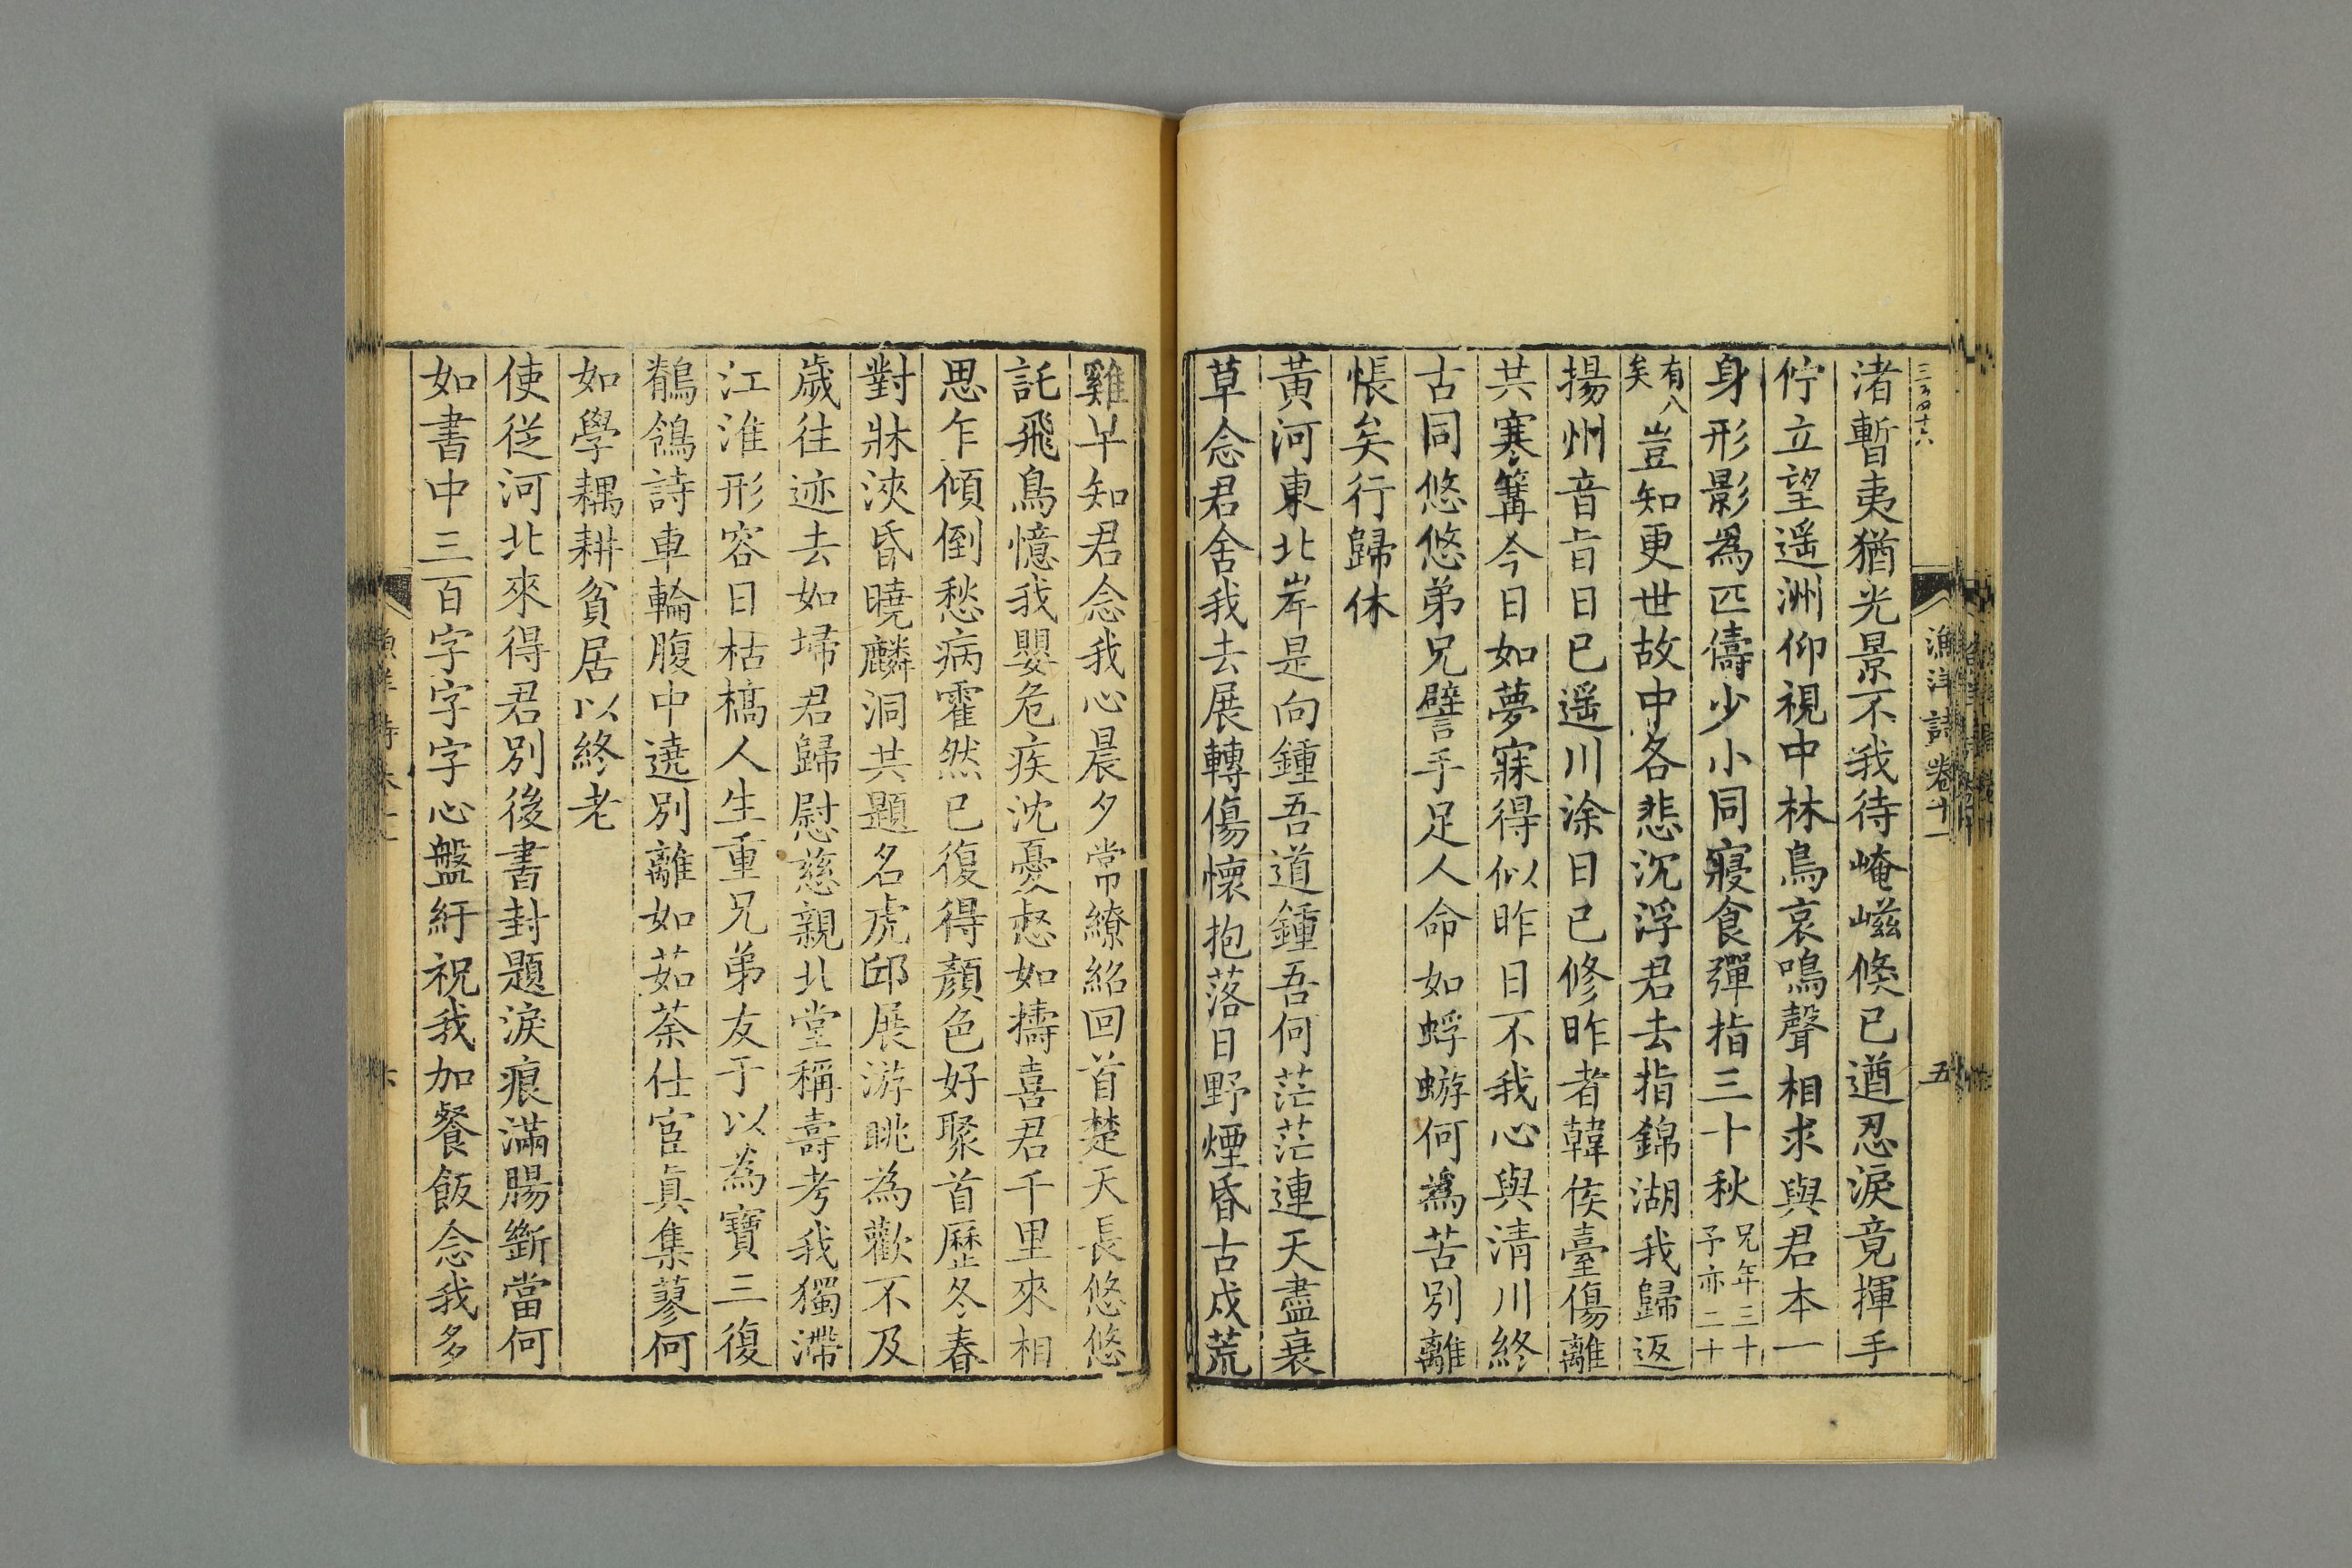 三百四十六
漁洋詩卷十一
五
渚暫夷猶光景不我待崦嵫倏已遒忍淚竟揮手
佇立望遥洲仰視中林鳥哀鳴聲相求與君本一
身形影爲匹儔少小同寢食彈指三十秋兄年三十予亦二十
有八矣豈知更世故中各悲沉浮君去指錦湖我歸返
揚州音旨日已遥川涂日已修昨者韓侯臺傷離
共寒篝今日如夢寐得似昨日不我心與淸川終
古同悠悠弟兄譬手足人命如蜉蝣何爲苦別離
悵矣行歸休
黃河東北岸是向鍾吾道鍾吾何茫茫連天盡衰
草念君舍我去展轉傷懷抱落日野煙昏古戍荒
雞早知君念我心晨夕常繚紹回首楚天長悠悠
託飛鳥憶我嬰危疾沈憂惄如擣喜君千里來相
思乍傾倒愁病霍然已復得顏色好聚首歷冬春
對牀浹昏曉麟洞共題名虎邱展游眺為歡不及
歲往迹去如埽君歸慰慈親北堂稱壽考我獨滯
江淮形容日枯槁人生重兄弟友于以為寶三復
鶺鴒詩車輪腹中遶別離如茹荼仕宦眞集蓼何
如學耦耕貧居以終老
使從河北來得君別後書封題淚痕滿腸斷當何
如書中三百字字字心盤紆祝我加餐飯念我多